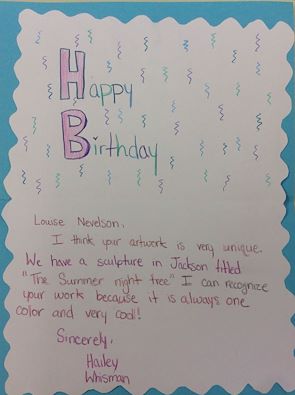 Happy
Birthday
Louise Nevelson,
I think your artwork is very unique.
We have a sculpture in Jackson titled
"The Summer night tree" I can recognize
your work because it is always one
color and very cool!
Sincerely,
Hailey
Whisman